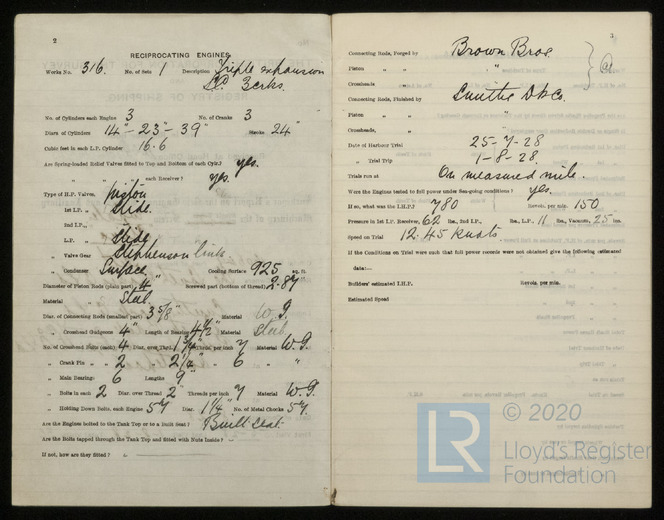 2
RECIPROCATING ENGINES.
Works No. 316. No. of Sets 1 Description Triple expansion
No. of Cylinders each Engine 3 No. of Cranks 3
Diars of Cylinders 14" - 23" - 39" Stroke 24"
Cubic feet in each L.P. Cylinder 16.6
Are Spring-loaded Relief Valves fitted to Top and Bottom of each Cylr.? yes.
" " " each Receiver? yes.
Type of H.P. Valves, piston
" 1st I.P. " slide.
" 2nd I.P. "
" L.P. " slide
" Valve Gear Stephenson links
" Condenser Surface Cooling Surface 925 sq. ft.
Diameter of Piston Rods (plain part) 4" Screwed part (bottom of thread) 2.87"
Material Steel
Diar. of Connecting Rods (smallest part) 3 5/8" Material W.I.
" Crosshead Gudgeons 4" Length of Bearing 4 1/2" Material Steel
No. of Crosshead Bolts (each) 4 Diar. over Thrd. 1 1/4" Thrds. per inch 7 Material W.I.
" Crank Pin " " 2 " 2 1/4" " 6 " "
" Main Bearings 6 Lengths 9"
" Bolts in each 2 Diar. over Thread 2" Threads per inch 7 Material W.I.
" Holding Down Bolts, each Engine 57 Diar. 1 1/4" No. of Metal Chocks 57.
Are the Engines bolted to the Tank Top or to a Built Seat? Built seat.
Are the Bolts tapped through the Tank Top and fitted with Nuts Inside?
If not, how are they fitted?
3
Connecting Rods, Forged by Brown Bros
Piston " " "
Crossheads " "
Connecting Rods, Finished by
Piston " "
Crossheads, "
Date of Harbour Trial 25-7-28
" Trial Trip 1-8-28.
Trials run at On measured mile.
Were the Engines tested to full power under Sea-going conditions? yes.
If so, what was the I.H.P.? 780 Revols. per min. 150
Pressure in 1st I.P. Receiver, 62 lbs., 2nd I.P., lbs., L.P., 11 lbs., Vacuum, 25 ins.
Speed on Trial 12.45 knots.
If the Conditions on Trial were such that full power records were not obtained give the following estimated
data:—
Builders' estimated I.H.P. Revols. per min.
Estimated Speed
LR
© 2020
Lloyd's Register
Foundation